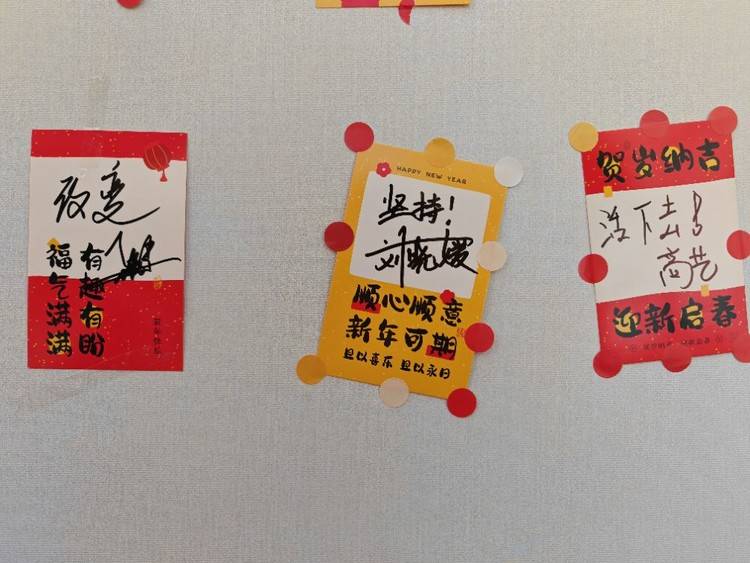 改变
有趣有盼
福气满满
新年快乐
HAPPY NEW YEAR
坚持！
刘晓媛
顺心顺意
新年可期
且以喜乐 且以永日
贺岁纳吉
活下去！
高芸
迎新启春